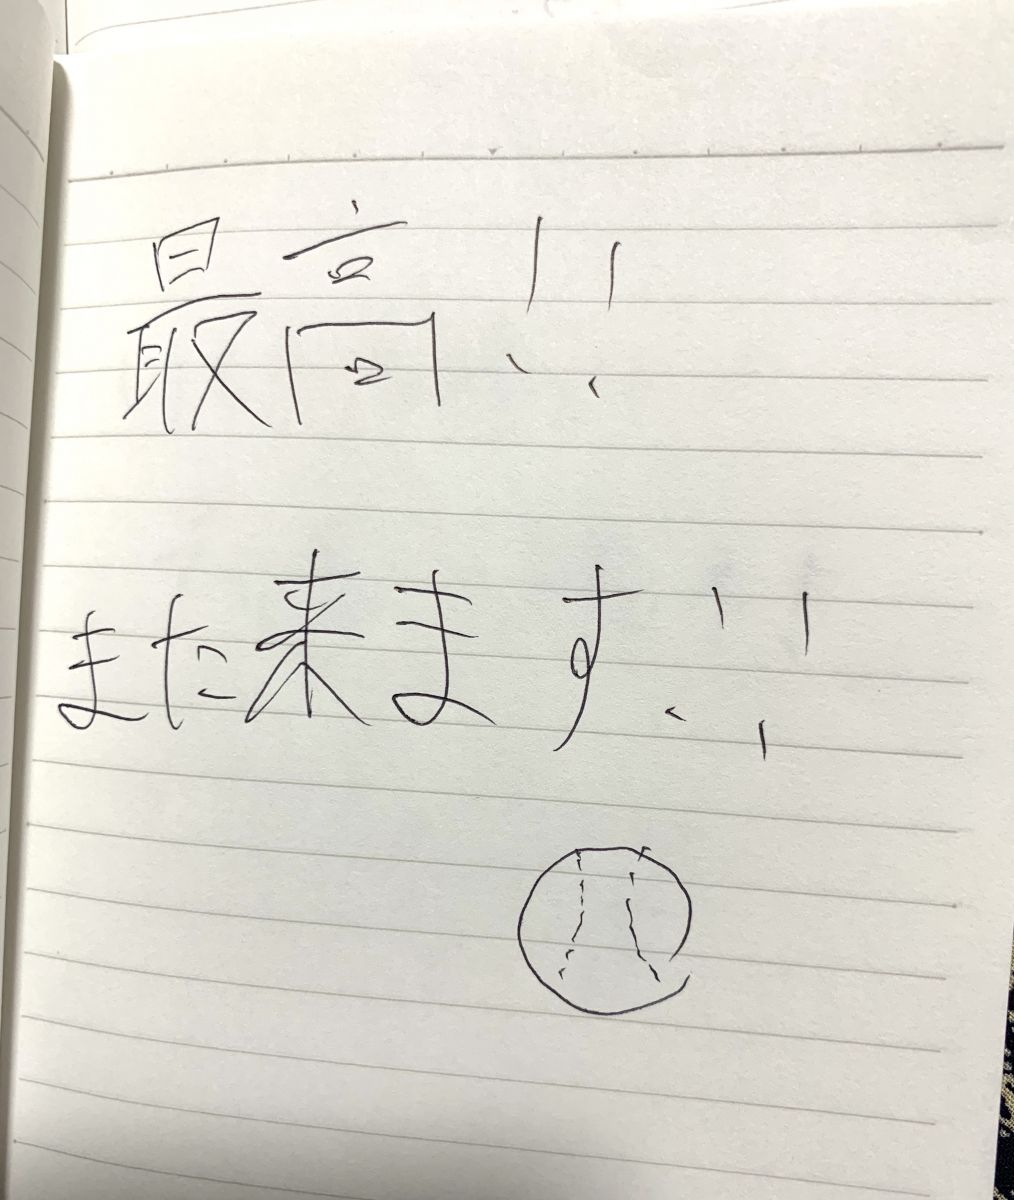 最高!!
また来ます!!